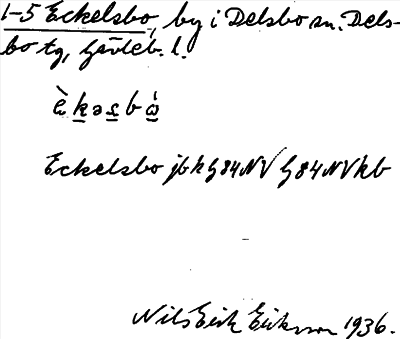 1-5 Eckelsbo, by i Delsbo sn. Dels-
bo tg, Gävleb. l.
Eckelsbo jbk G84NV G84NVkb
Nils Erik Eriksson 1936.